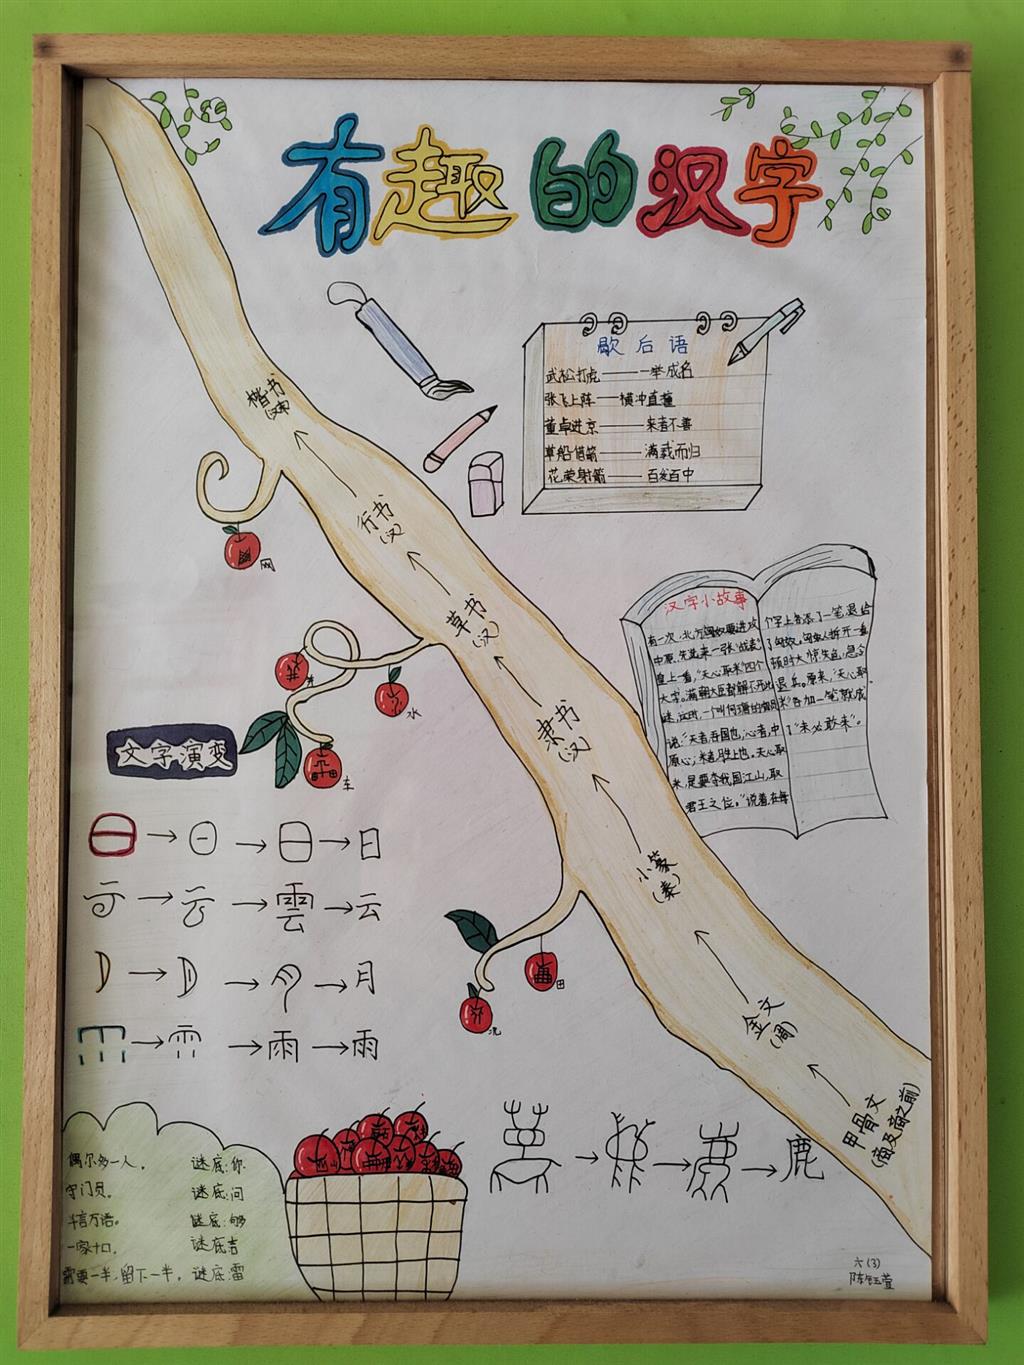 有趣的汉字
歇后语
武松打虎———一举成名
张飞上阵——横冲直撞
董卓进京———来者不善
草船借箭———满载而归
花荣射箭———百发百中
楷书
(汉末)
行书
(汉)
草书
(汉)
隶书
(汉)
小篆
(秦)
金文
(周)
甲骨文
(商及商之前)
网
水
车
田
文字演变
日
雲 云
月
雨 雨
鹿
汉字小故事
有一次,北方匈奴要进攻
中原,先送来一张"战表"
皇上一看,"天心取米"四个
大字。满朝大臣都解不开此
谜,这时,一个叫何瑭的官员
说:"天者,吾国也;心者,中
原心;米者,圣上也。天心取
米,是要夺我国江山,取
君王之位。"说着,在每
个字上各添了一笔,退给
了匈奴。匈奴人拆开一看
顿时大惊失色,急令
退兵。原来,"天心取
米"各加一笔就成
了"未必敢来"。
偶尔多一人。 谜底:你
守门员。 谜底:问
半言万语。 谜底:够
一家十口。 谜底吉
需要一半,留下一半。谜底:雷
六(3)
陈钰萱